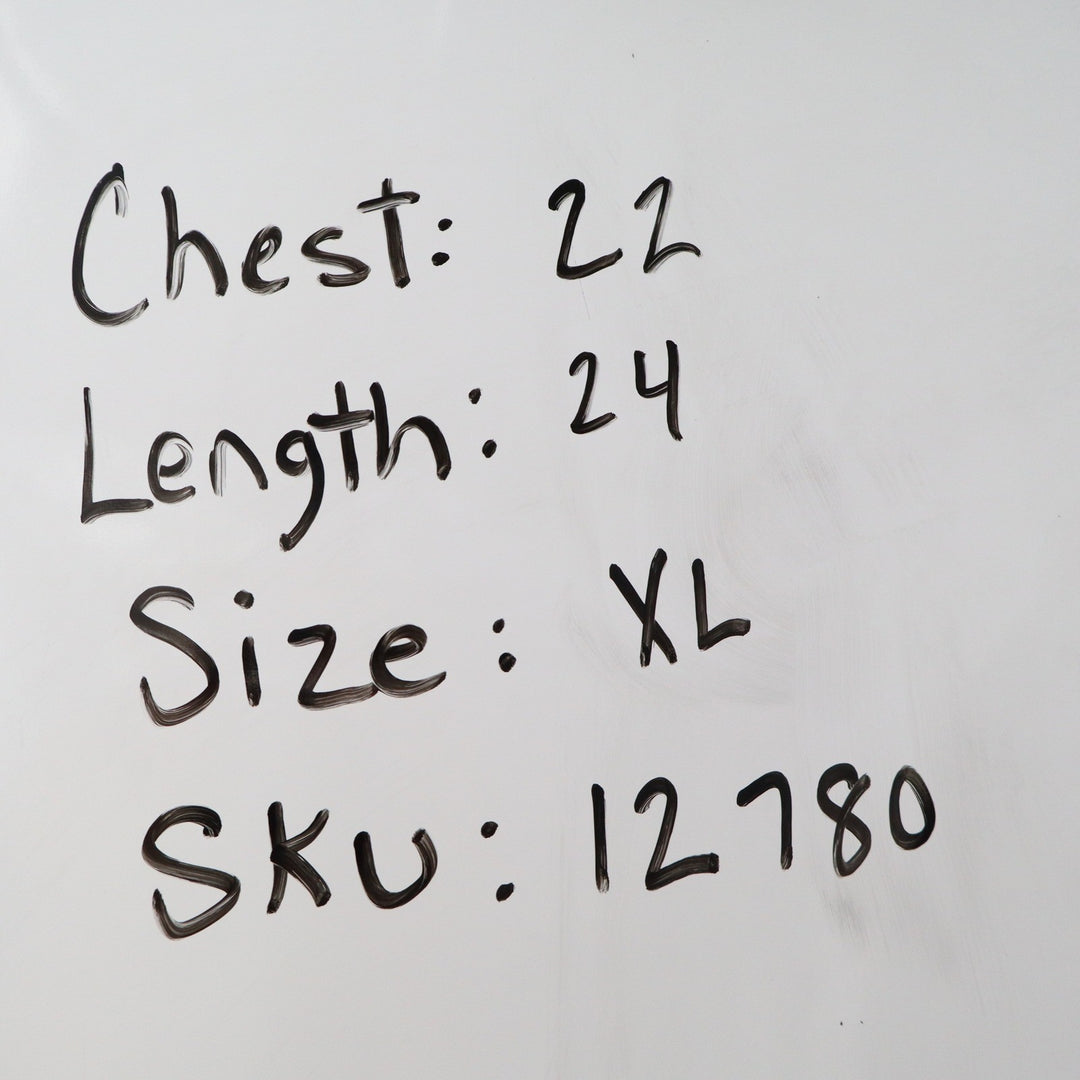 Chest: 22
Length: 24
Size: XL
Sku: 12780